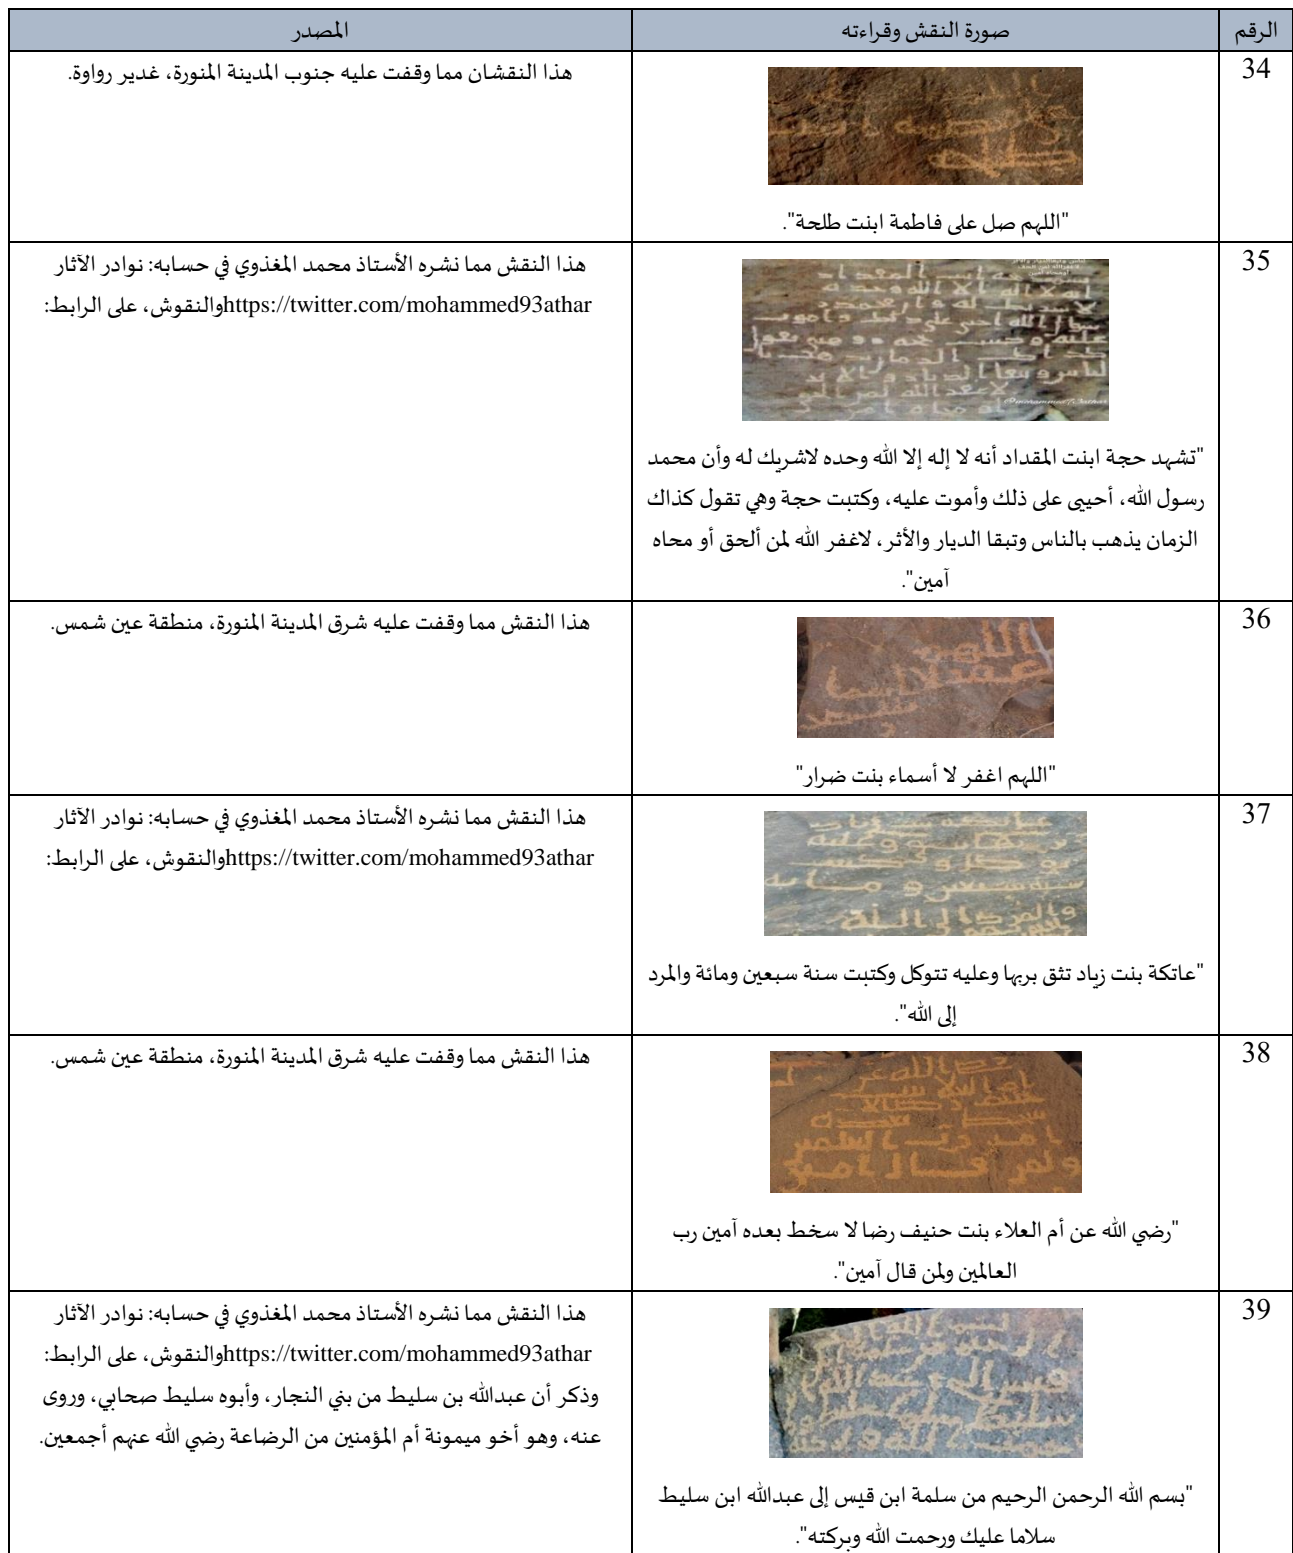 الرقم صورة النقش وقراءته المصدر
34
"اللهم صل على فاطمة ابنت طلحة".
هذا النقشان مما وقفت عليه جنوب المدينة المنورة، غدير رواوة.
35
"تشهد حجة ابنت المقداد أنه لا إله إلا الله وحده لاشريك له وأن محمد
رسول الله، أحيى على ذلك وأموت عليه، وكتبت حجة وهي تقول كذاك
الزمان يذهب بالناس وتبقا الديار والأثر، لاغفر الله لمن ألحق أو محاه
آمين".
هذا النقش مما نشره الأستاذ محمد المغذوي في حسابه: نوادر الآثار
https://twitter.com/mohammed93atharوالنقوش، على الرابط:
36
"اللهم اغفر لا أسماء بنت ضرار"
هذا النقش مما وقفت عليه شرق المدينة المنورة، منطقة عين شمس.
37
"عاتكة بنت زياد تثق بربها وعليه تتوكل وكتبت سنة سبعين ومائة والمرد
إلى الله".
هذا النقش مما نشره الأستاذ محمد المغذوي في حسابه: نوادر الآثار
https://twitter.com/mohammed93atharوالنقوش، على الرابط:
38
"رضي الله عن أم العلاء بنت حنيف رضا لا سخط بعده آمين رب
العالمين ولمن قال آمين".
هذا النقش مما وقفت عليه شرق المدينة المنورة، منطقة عين شمس.
39
"بسم الله الرحمن الرحيم من سلمة ابن قيس إلى عبدالله ابن سليط
سلاما عليك ورحمت الله وبركته".
هذا النقش مما نشره الأستاذ محمد المغذوي في حسابه: نوادر الآثار
https://twitter.com/mohammed93atharوالنقوش، على الرابط:
وذكر أن عبدالله بن سليط من بني النجار، وأبوه سليط صحابي، وروى
عنه، وهو أخو ميمونة أم المؤمنين من الرضاعة رضي الله عنهم أجمعين.